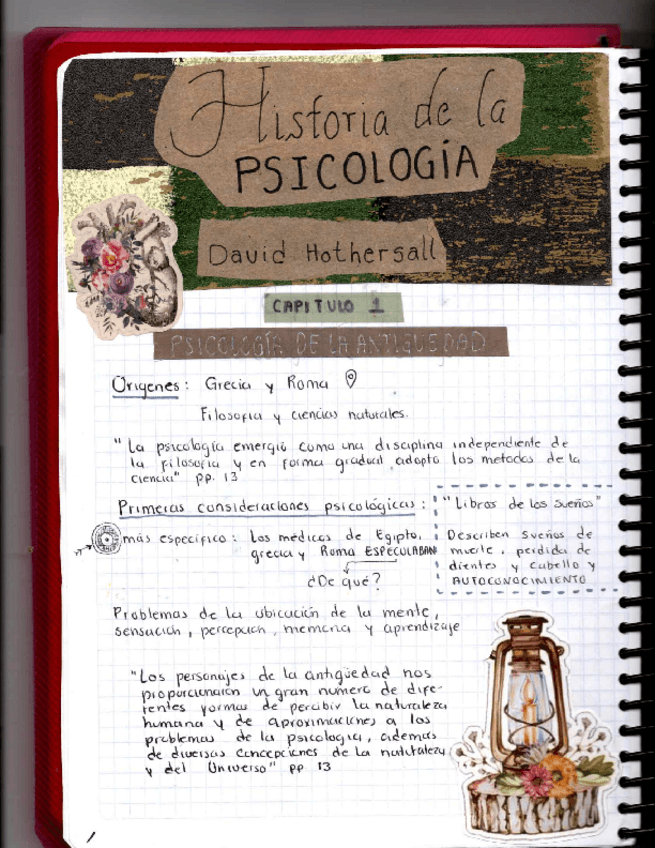 Historia de la
PSICOLOGÍA
David Hothersall
CAPITULO 1
PSICOLOGÍA DE LA ANTIGUEDAD
Origenes: Grecia y Roma
Filosofia y ciencias naturales.
"La psicología emergió como una disciplina independiente de
la filosofia y en forma gradual adopto los metodos de la
ciencia" pp. 13
Primeras consideraciones psicológicas:
más especifico: Los médicos de Egipto,
grecia y Roma ESPECULABAN
¿De qué?
"Libros de los sueños"
Describen sueños de
muerte, perdida de
dientes y cabello y
AUTOCONOCIMIENTO
Problemas de la ubicación de la mente,
sensación, percepción, memoria y aprendizaje
"Los personajes de la antigüedad nos
proporcionaron un gran numero de dife-
rentes formas de percibir la naturaleza
humana y de aproximaciones a los
problemas de la psicologia, ademas
de diversas concepciones de la naturaleza
y del Universo" pp 13